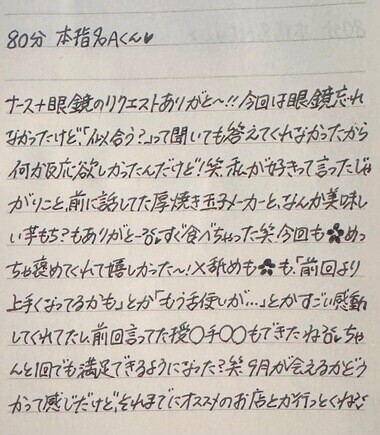 80分 本指名Aくん♥
ナース+眼鏡のリクエストありがと〜!!今回は眼鏡忘れ
なかったけど、「似合う?」って聞いても答えてくれなかったから
何か反応欲しかったんだけど!笑 私が好きって言ったじゃ
がりこと、前に話してた厚焼き玉子メーカーと、なんか美味し
い芋もち?もありがと〜すぐ食べちゃった笑 今回も✿めっ
ちゃ褒めてくれて嬉しかった〜!×舐めも✿も、「前回より
上手くなってるかも」とか「もう舌使いが...」とかすごい感動
してくれてたし、前回言ってた授〇手〇〇もできたね ちゃ
んと1回でも満足できるようになった?笑 9月が会えるかどう
かって感じだけど、それまでにオススメのお店とか行っとくね